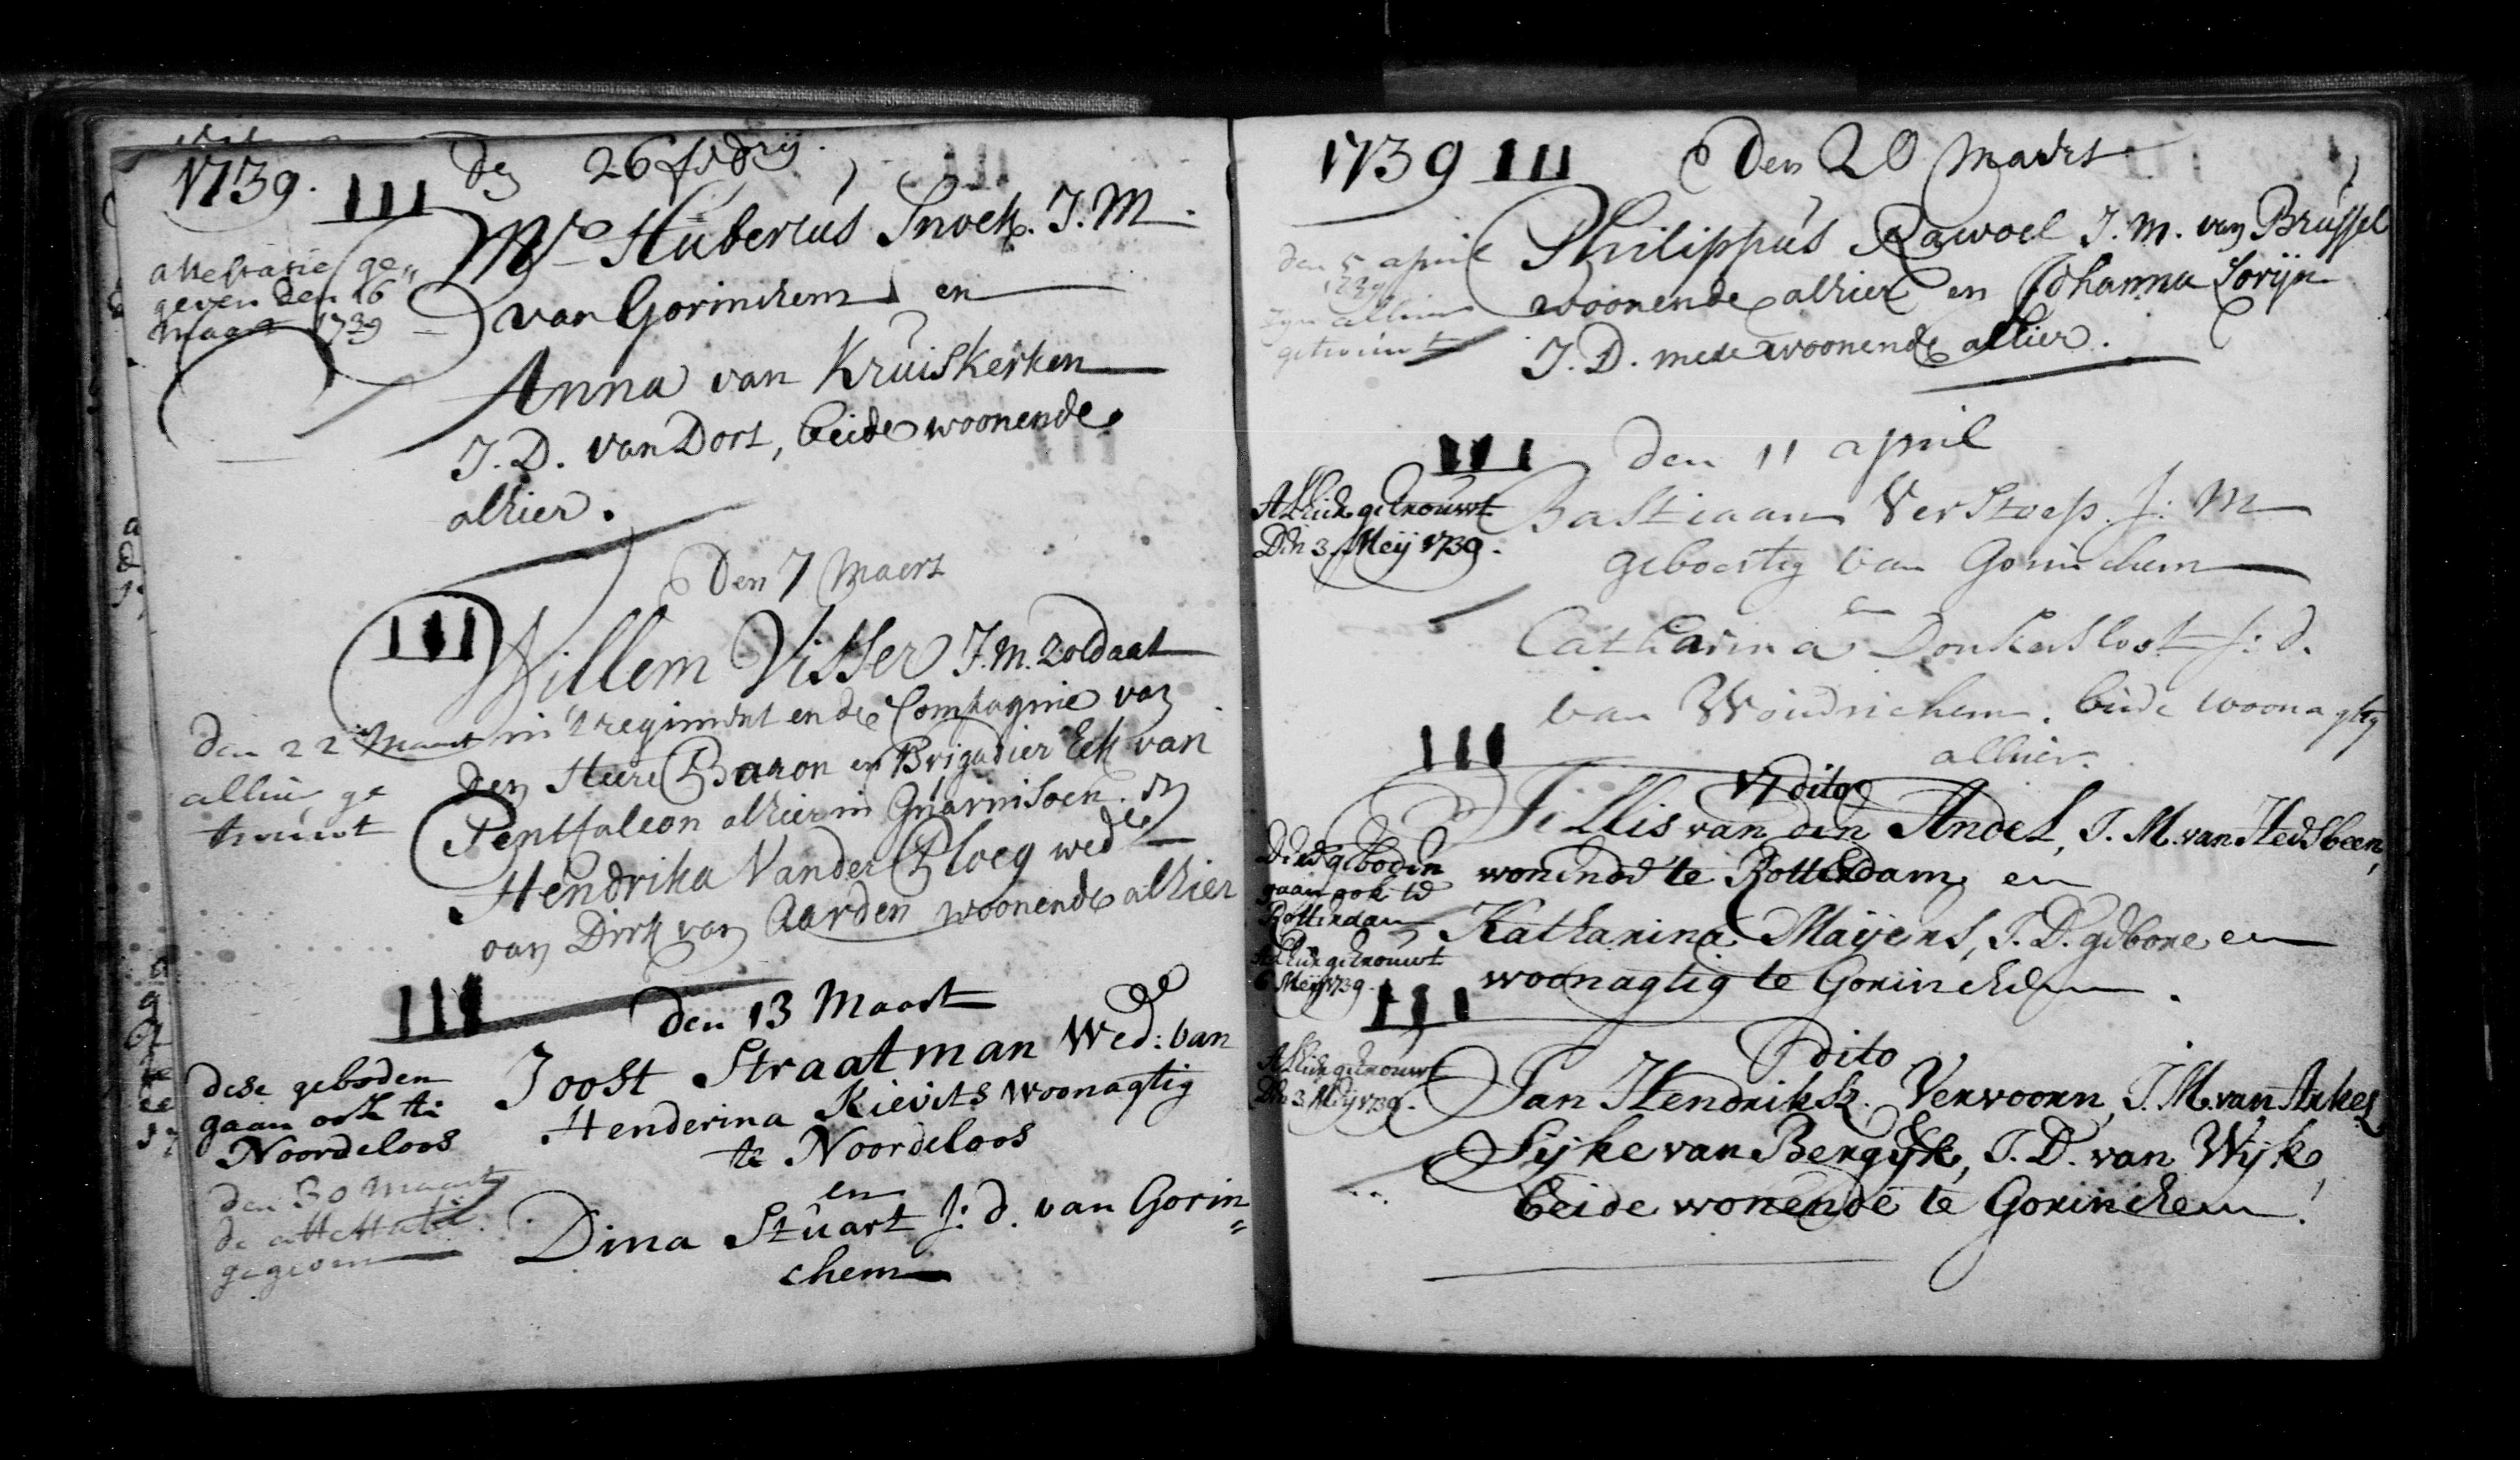 1739.
den 26 febrij.
Mr. Hubertus Snoek. J.M.
van Gorinchem en
Anna van Kruiskerken
J.D. van Dort, beide woonende
alhier.
attestatie ge„
geven den 16
maart 1739
Den 7 Maert
Willem Visser J.m. Zoldaat
in 't regiment en de Compagnie van
den Heere Baron en Brigadier Eck van
Pentfaleon alhier in Guarnisoen. en
Hendrika Vander Ploeg wede
van Dirk van Aarden woonende alhier
den 22 Maart
alhier ge
trouwt
den 13 Maart
Joost Straatman Wed: van
Henderina Kievits woonagtig
te Noordeloos
en
Dina Stuart j:d. van Gorin
chem
dese geboden
gaan ook te
Noordeloos
den 30 Maart
de attestatie
gegeven
1739
Den 20 Maert
Philippus Rawoel J.m. van Brussel
woonende alhier en Johanna Lorijn
J.D. mede woonende alhier.
den 5 april
1739
zijn alhier
getrouwt
den 11 april
Bastiaan Verstoep. J:M
geboortig van Gorinchem
en
Catharina Donkersloot J:d.
van Woudrichem. beide woonagtig
alhier.
Alhier getrouwt
Den 3 Meij 1739.
17 dito
Jillis van den Andel, J.M. van Heesbeen,
wonende te Rotterdam, en
Katharina Maijens, J.D. gebore en
woonagtig te Gorinchem.
Dese geboden
gaan ook te
Rotterdam
Alhier getrouwt
6 Meij 1739.
dito
Jan Hendriksz. Vervoorn, J.M. van Arkel
&
Sijke van Bergijk, J.D. van Wijk,
beide wonende te Gorinchem.
Alhier getrouwt
Den 3 Meij 1739.